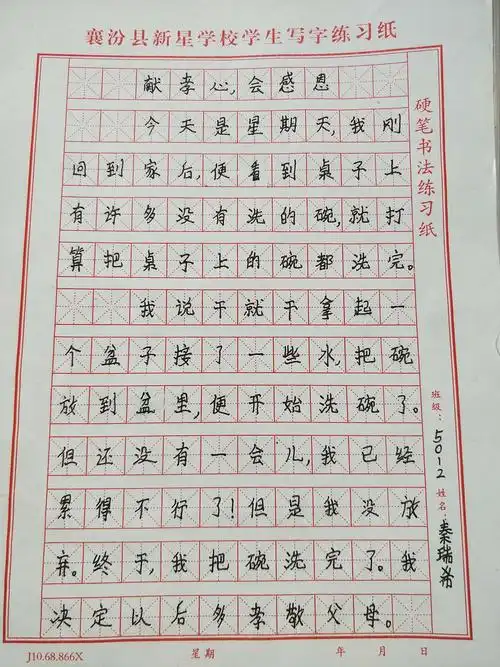 襄汾县新星学校学生写字练习纸
献孝心,会感恩
今天是星期天,我刚
回到家后,便看到桌子上
有许多没有洗的碗,就打
算把桌子上的碗都洗完。
我说干就干拿起一
个盆子接了一些水,把碗
放到盆里,便开始洗碗了。
但还没有一会儿,我已经
累得不行了!但是我没放
弃。终于,我把碗洗完了。我
决定以后多孝敬父母。
硬笔书法练习纸
班级:5012 姓名:秦瑞希
J10.68.866X 星期 年 月 日